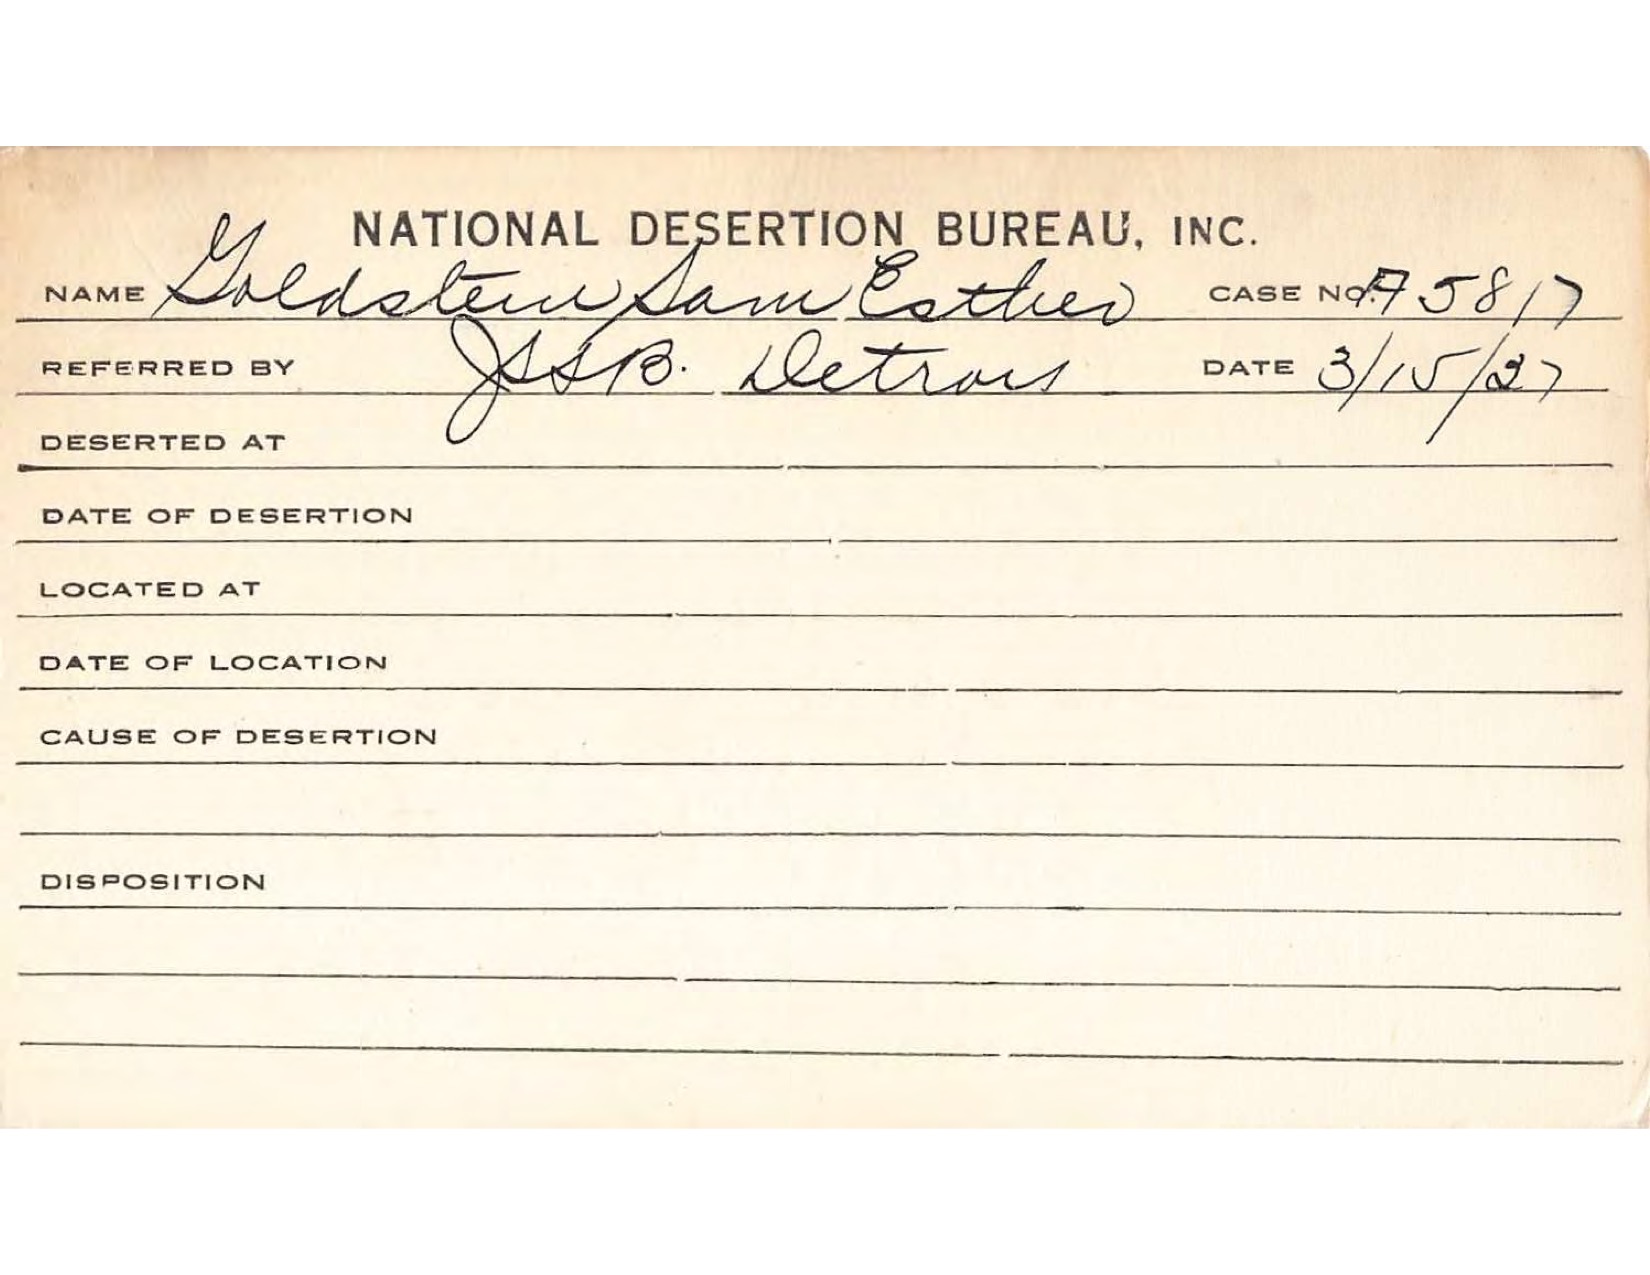 NATIONAL DESERTION BUREAU, INC.
NAME Goldstein Sam Esther CASE NO. A5817
REFERRED BY JSSB. Detroit DATE 3/15/27
DESERTED AT
DATE OF DESERTION
LOCATED AT
DATE OF LOCATION
CAUSE OF DESERTION
DISPOSITION